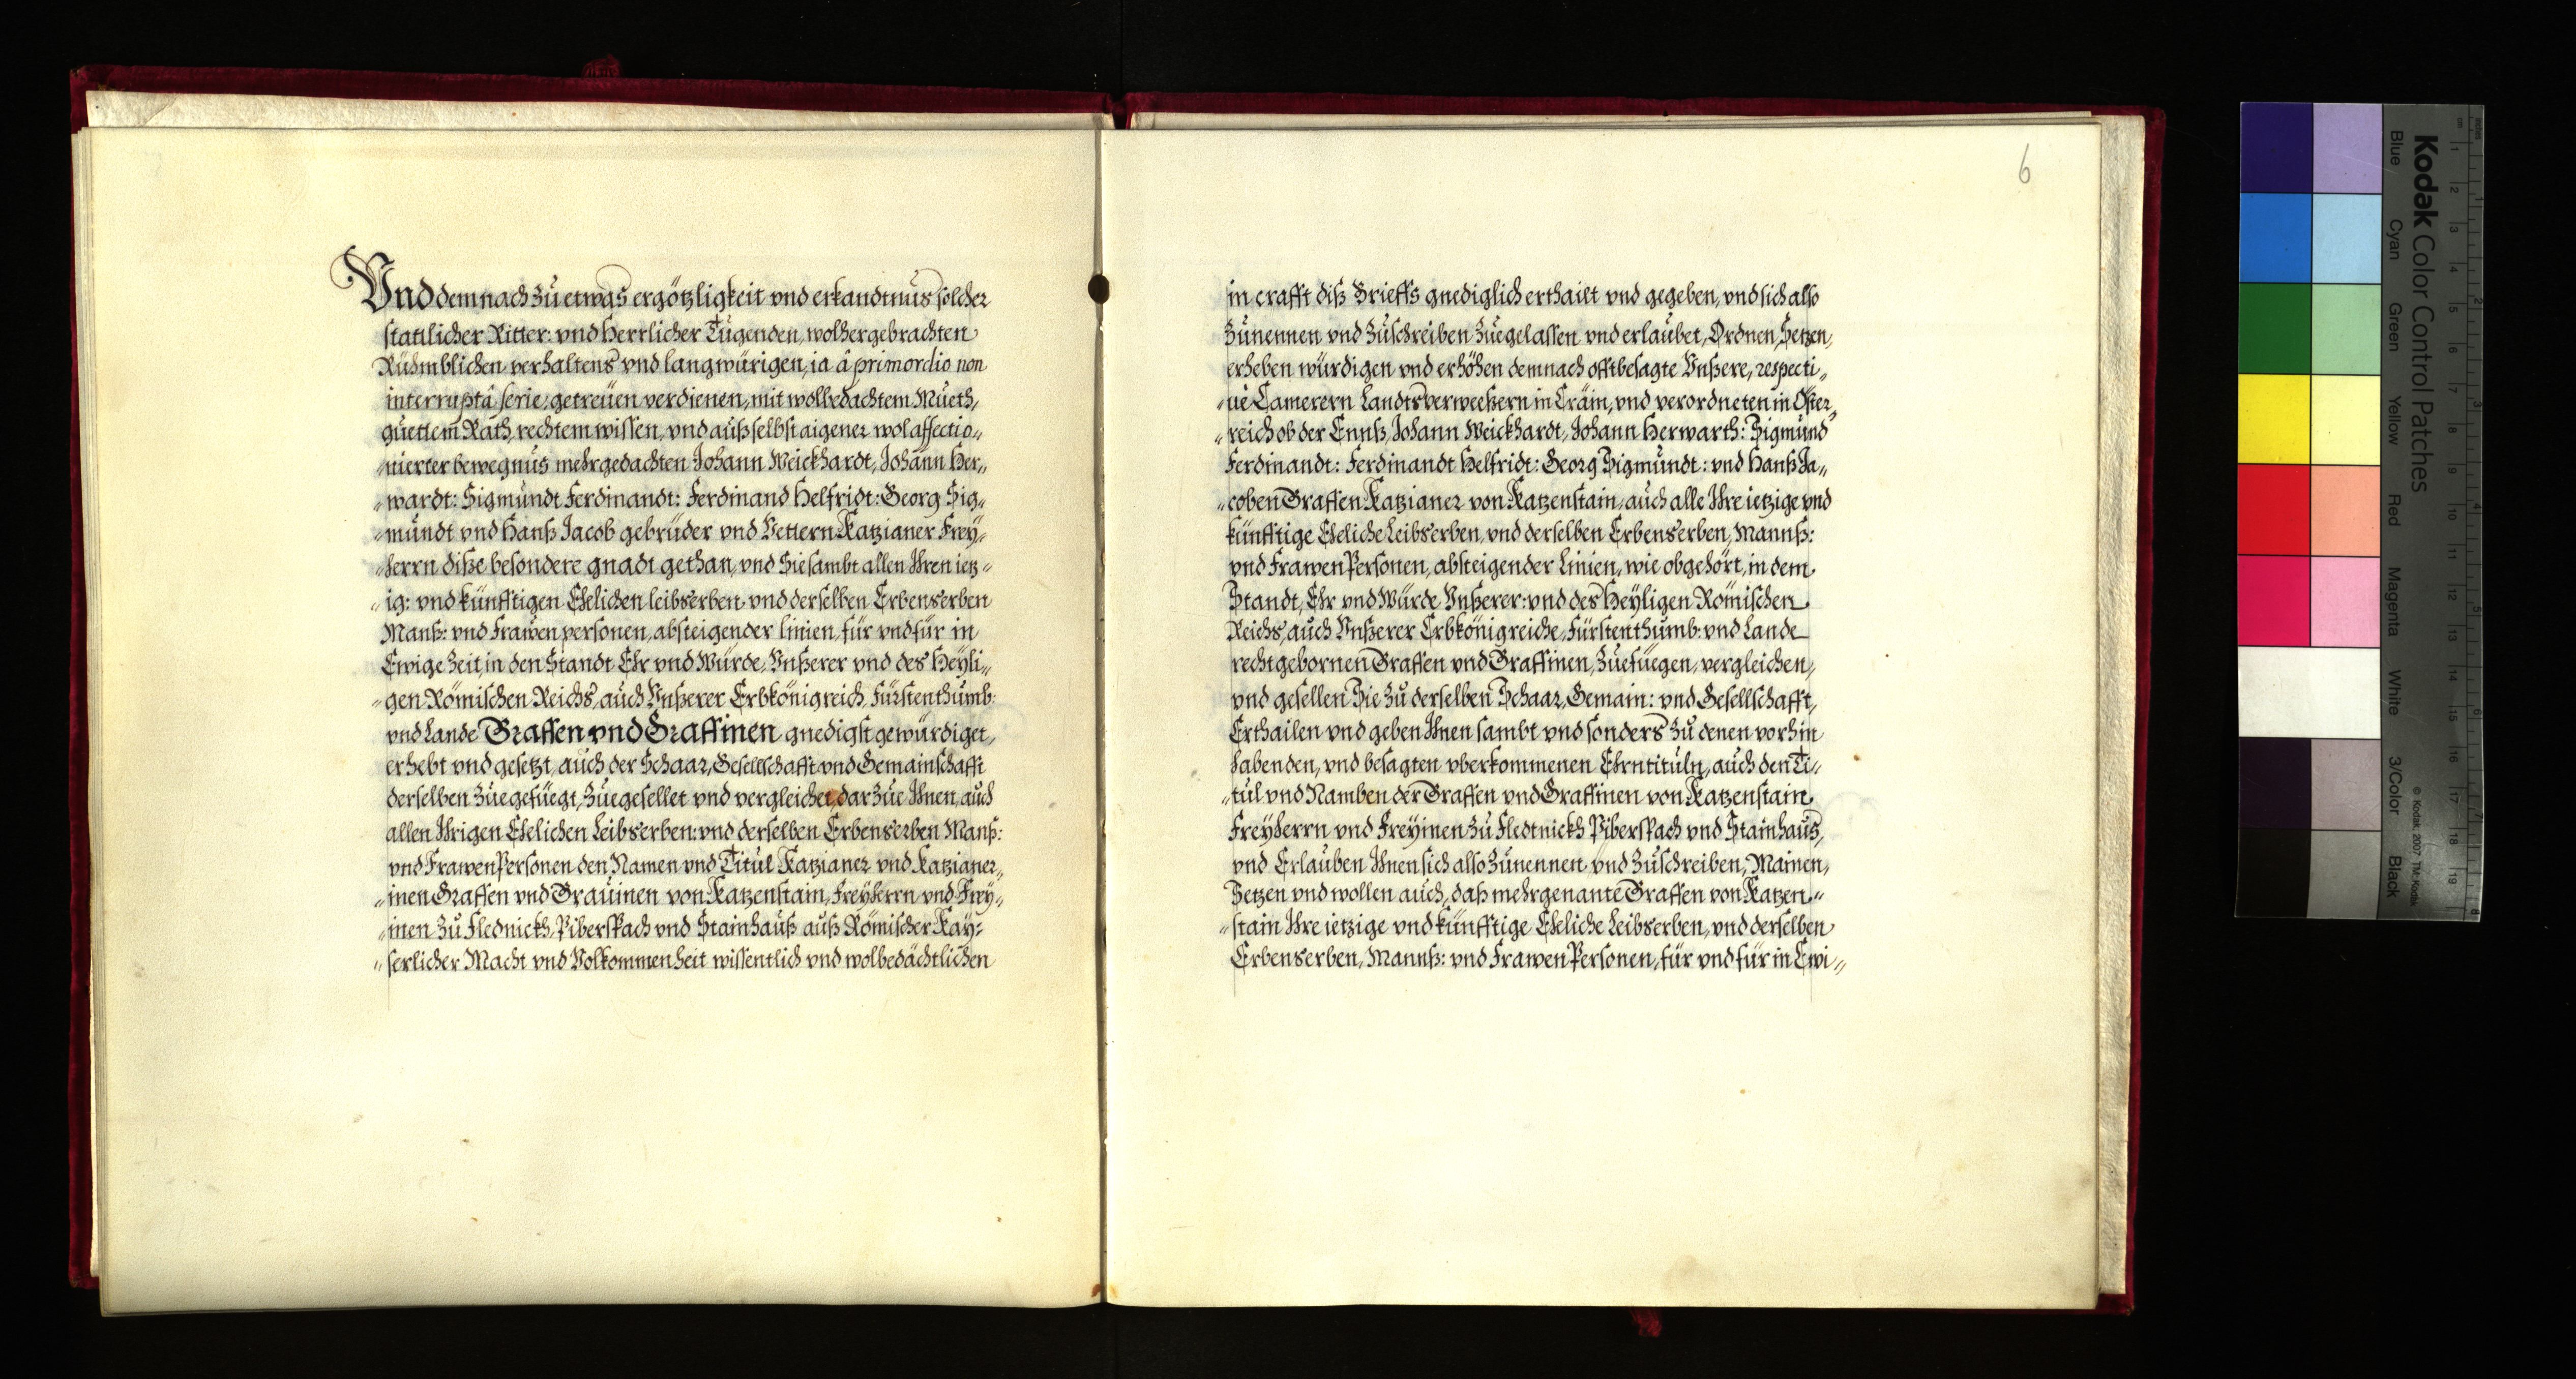 Vnd demnach zu etwas ergötzligkeit vnd erkandtnus solcher
stattlicher Ritter: vnd Herrlicher Tugenden, wolhergebrachten
Rühmblichen verhaltens vnd langwürigen, ia â primordio non
interruptâ serie, getreüen verdienen, mit wolbedachtem Müeth,
guettem Rath, rechtem wissen, vnd auß selbst aigener wolaffectio„
„nierter bewegnus mehrgedachten Johann Weickhardt, Johann Her„
„wardt: Sigmundt Ferdinandt: Ferdinand Helfridt: Georg Sig„
„mundt vnd Hanß Jacob gebrüder vnd Vettern Katzianer Frey„
„herrn diße besondere gnadt gethan, vnd Sie sambt allen Ihren ietz„
„ig: vnd künfftigen Ehelichen leibserben vnd derselben Erbenserben
Manß: vnd Frawen personen, absteigender linien, für vnd für in
Ewige Zeit, in den Standt Ehr vnd Würde, Vnßerer vnd des Heyli„
„gen Römischen Reichs, auch Vnßerer Erbkönigreich, Fürstenthumb:
vnd Lande Graffen vnd Graffinen gnedigst gewürdiget,
erhebt vnd gesetzt, auch der Schaar, Gesellschafft vnd Gemainschafft
derselben Zuegefüegt, Zuegesellet vnd vergleichet, dar Zue Ihnen, auch
allen Ihrigen Ehelichen Leibserben: vnd derselben Erbenserben Manß:
vnd Frawen Personen den Namen vnd Titul Katzianer vnd Katzianer„
„inen Graffen vnd Grauinen von Katzenstain, Freyherrn vnd Frey„
„inen Zu Flednickh, Piberspach vnd Stainhauß auß Römischer Kay:
„serlicher Macht vnd Volkommenheit wissentlich vnd wolbedächtlichen
6
in crafft diß Brieffs gnediglich erthailt vnd gegeben, vnd sich also
Zunennen vnd Zuschreiben Zuegelassen vnd erlaubet, Ordnen, Setzen,
erheben würdigen vnd erhöhen demnach offtbesagte Vnßere, respecti„
„uè Camerern Landtsverweeßern in Crain, vnd verordneten in Öster„
„reich ob der Ennß, Johann Weickhardt, Johann Herwarth: Sigmund
Ferdinandt: Ferdinandt Helfridt: Georg Sigmundt: vnd Hanß Ja„
„coben Graffen Katzianer von Katzenstain, auch alle Ihre ietzige vnd
künfftige Eheliche Leibserben, vnd derselben Erbenserben, Mannß:
vnd Frawen Personen, absteigender Linien, wie obgehört, in dem
Standt, Ehr vnd Würde Vnßerer: vnd des Heyligen Römischen
Reichs, auch Vnßerer Erbkönigreiche, Fürstenthumb: vnd Lande
recht gebornen Graffen vnd Graffinen, Zuefüegen, vergleichen,
vnd gesellen Sie Zu derselben Schaar, Gemain: vnd Gesellschafft,
Erthailen vnd geben Ihnen sambt vnd sonders Zu denen vorhin
habenden, vnd besagten vberkommenen Ehrntituln, auch den Ti„
„tul vnd Namben der Graffen vnd Graffinen von Katzenstain
Freyherrn vnd Freyinen Zu Fledtnickh Piberspach vnd Stainhaus,
vnd Erlauben Ihnen sich also Zunennen vnd Zuschreiben, Mainen,
Setzen vnd wollen auch, daß mehrgenante Graffen von Katzen„
„stain Ihre ietzige vnd künfftige Eheliche Leibserben, vnd derselben
Erbenserben, Mannß: vnd Frawen Personen, für vnd für in Ewi„
Kodak Color Control Patches
© Kodak, 2007 TM: Kodak
Blue
Cyan
Green
Yellow
Red
Magenta
White
3/Color
Black